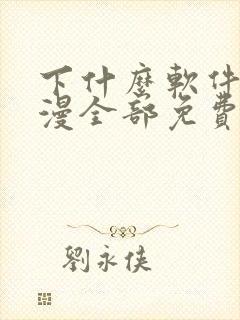 下什麼軟件
漫全部免費
劉永俠